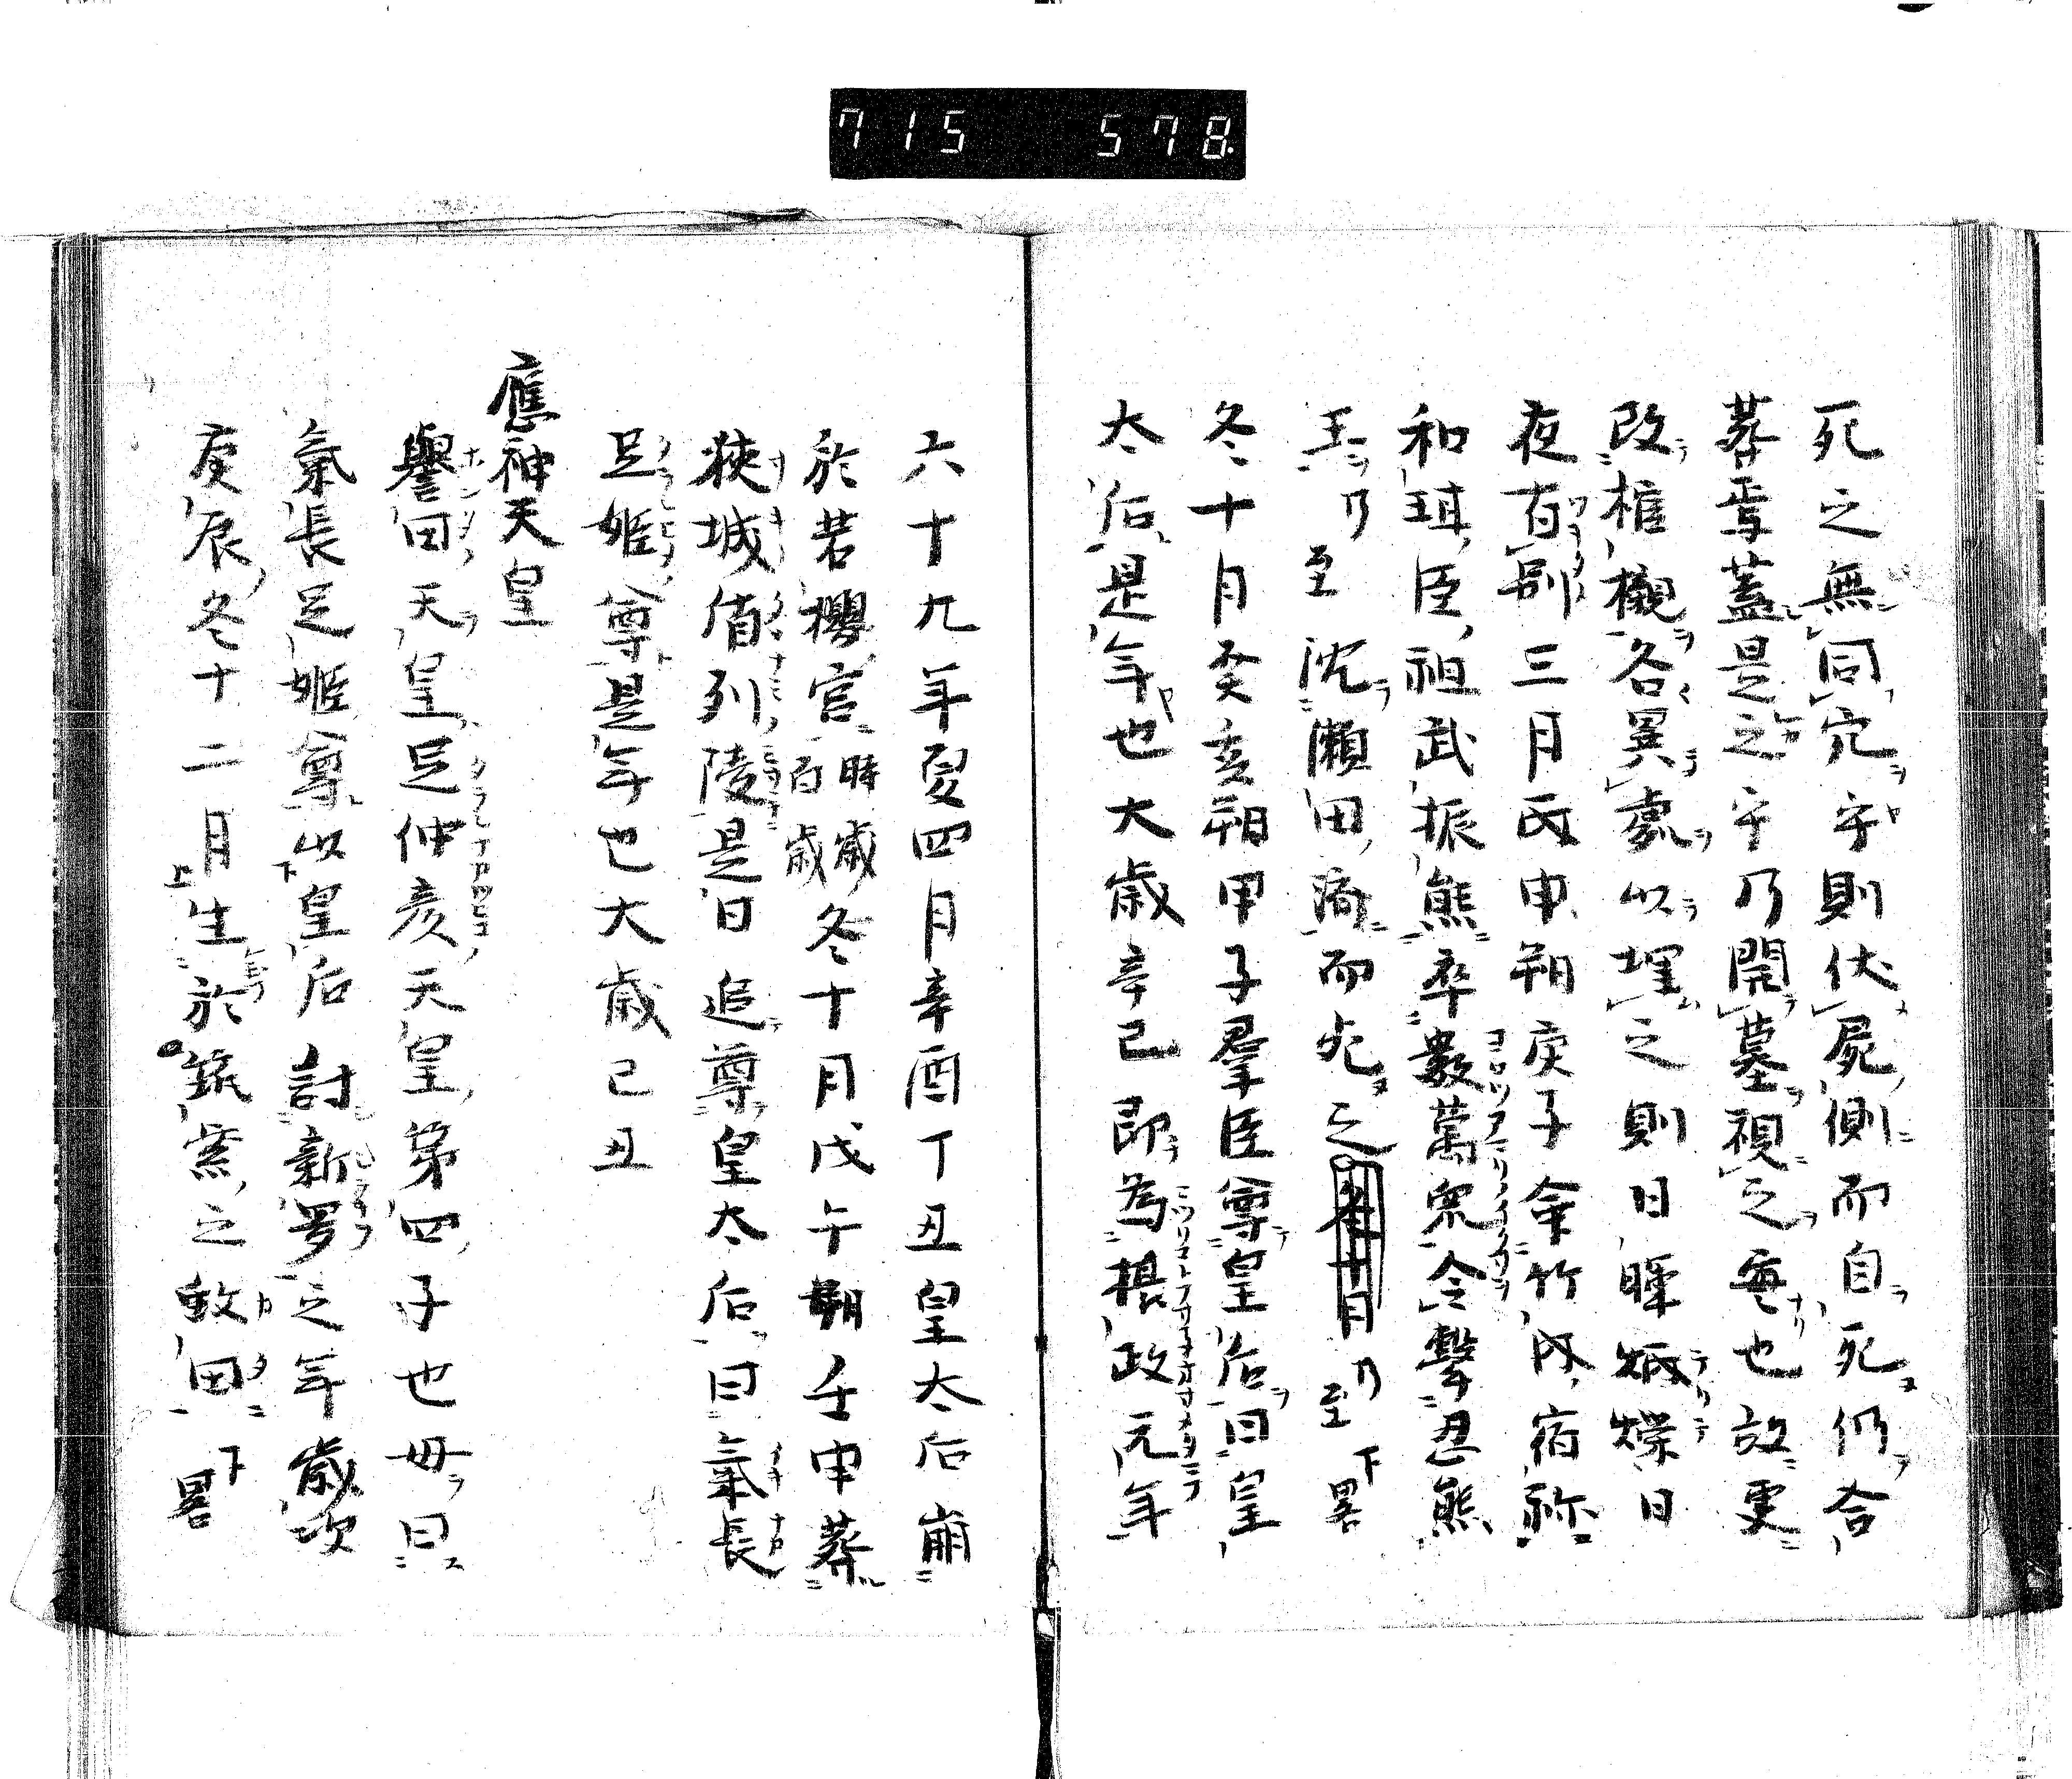 715 578.
死之無同穴乎則伏屍側而自死仍合
葬焉蓋是之乎乃開墓視之無也故更
改棺櫬各異處以埋之則日暉炳爍日
夜有別三月丙申朔庚子命武內宿祢
和珥臣祖武振熊率數萬衆令擊忍熊
王乃至沈瀬田濟而死之 乃至下畧
冬十月癸亥朔甲子羣臣尊皇后曰皇
太后是年也大歳辛巳即為摂政元年
六十九年夏四月辛酉丁丑皇太后崩
於若櫻宮時歳百歳冬十月戊午朔壬申葬
狹城盾列陵是日追尊皇太后曰氣長
足姬尊是年也大歳己丑
應神天皇
譽田天皇足仲彦天皇第四子也母曰
氣長足姬尊以皇后討新羅之年歳次
庚辰冬十二月生於筑紫之蚊田下畧